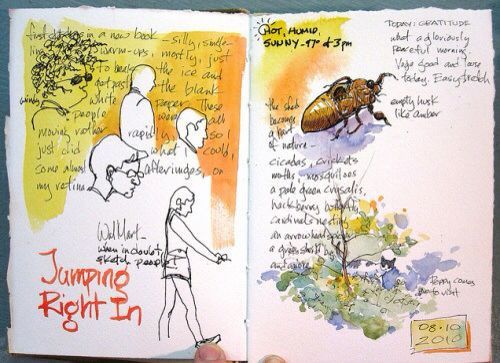 first sketches in a new book – silly, simple
line warm-ups, mostly, just
to break the ice and
get past the blank
white paper. These
people were all
moving rather rapidly, so I
just did what I could,
some almost afterimages, on
my retina.
WalMart–
when in doubt,
sketch people!
Jumping
Right In
HOT, HUMID,
SUNNY – 97° at 3pm
TODAY: GRATITUDE
what a gloriously
peaceful morning.
Yoga good and
today. Easy stretch
empty husk
like amber
the shed
becomes
a part
of nature –
cicadas, crickets
moths, mosquitoes
a pale green crysalis,
hackberry butterfly
cardinals nesting
an arrowhead
a green
and
Peppy comes
to visit
08.10
2010